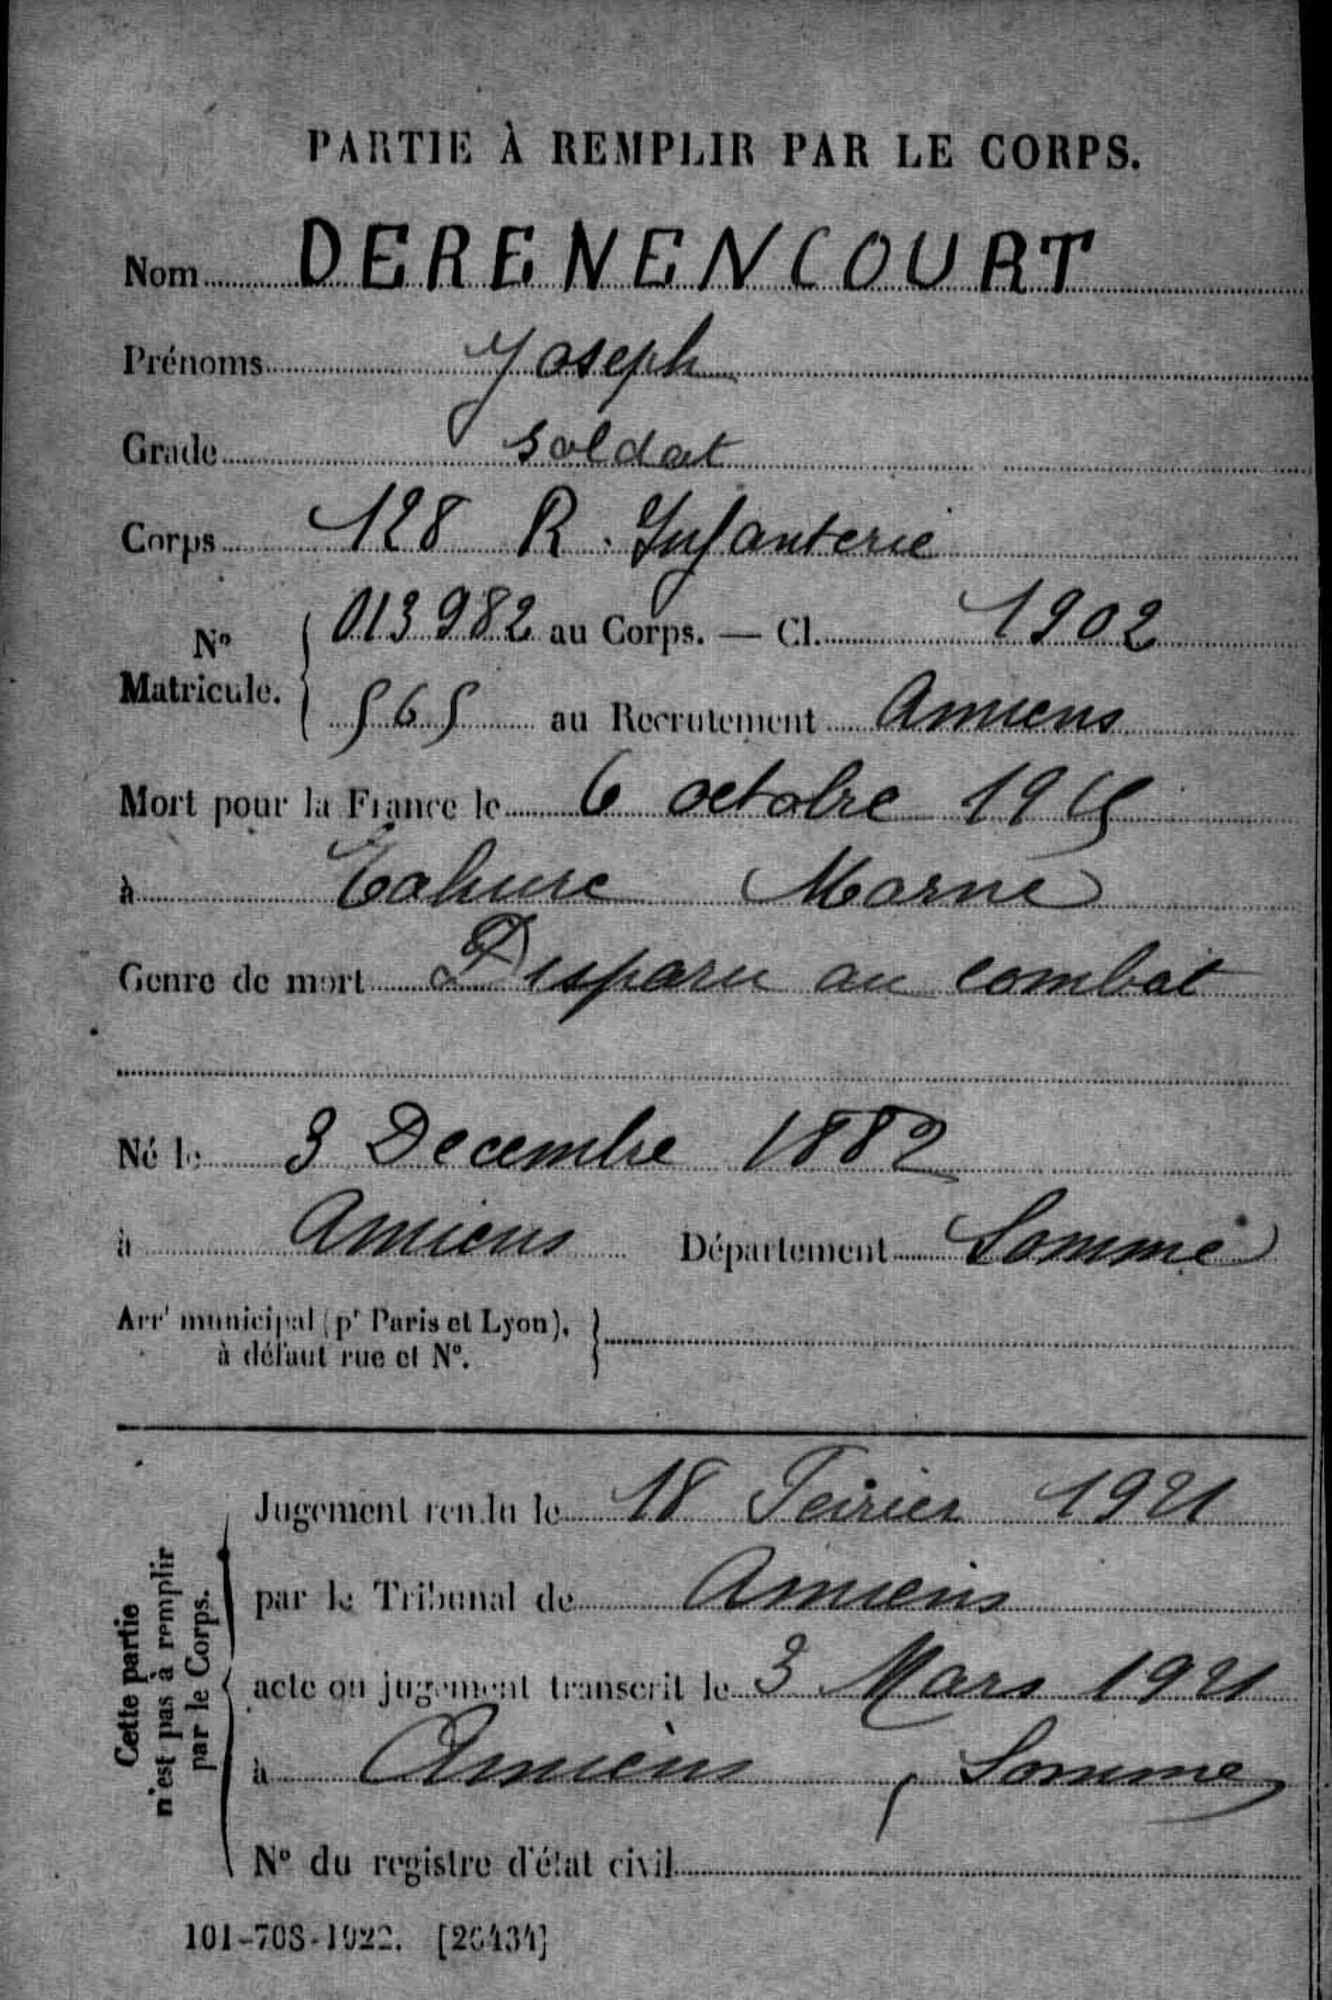 PARTIE À REMPLIR PAR LE CORPS.
Nom DERENENCOURT
Prénoms Joseph
Grade soldat
Corps 128 R. Infanterie
N° Matricule. { 013982 au Corps. — Cl. 1902
565 au Recrutement Amiens
Mort pour la France le 6 octobre 1915
à Tahure Marne
Genre de mort Disparu au combat
Né le 3 Decembre 1882
à Amiens Département Somme
Arrt municipal (pr Paris et Lyon), à défaut rue et N°. }
Cette partie n'est pas à remplir par le Corps.
Jugement rendu le 18 Février 1921
par le Tribunal de Amiens
acte ou jugement transcrit le 3 Mars 1921
à Amiens, Somme
N° du registre d'état civil
101-708-1922. [26434]